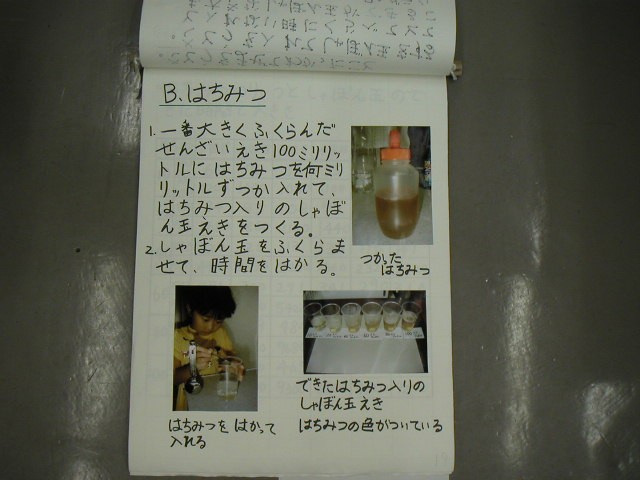 B、はちみつ
1. 一番大きくふくらんだ
せんざいえき100ミリリッ
トルにはちみつを何ミリ
リットルずつか入れて、
はちみつ入りのしゃぼ
ん玉えきをつくる。
2. しゃぼん玉をふくらま
せて、時間をはかる。
つかった
はちみつ
できたはちみつ入りの
しゃぼん玉えき
はちみつの色がついている
はちみつをはかって
入れる